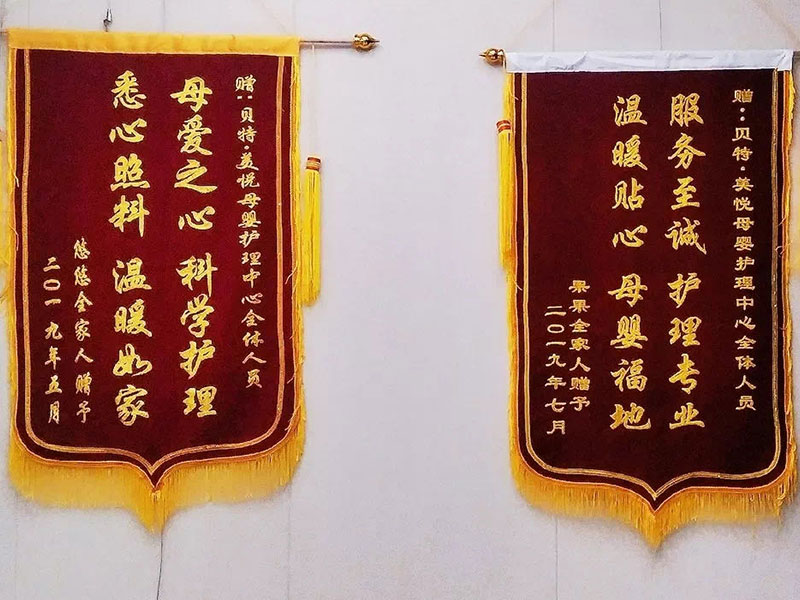 赠：贝特·美悦母婴护理中心全体人员
母爱之心 科学护理
悉心照料 温暖如家
悠悠全家人赠予
二〇一九年五月
赠：贝特·美悦母婴护理中心全体人员
服务至诚 护理专业
温暖贴心 母婴福地
果果全家人赠予
二〇一九年七月